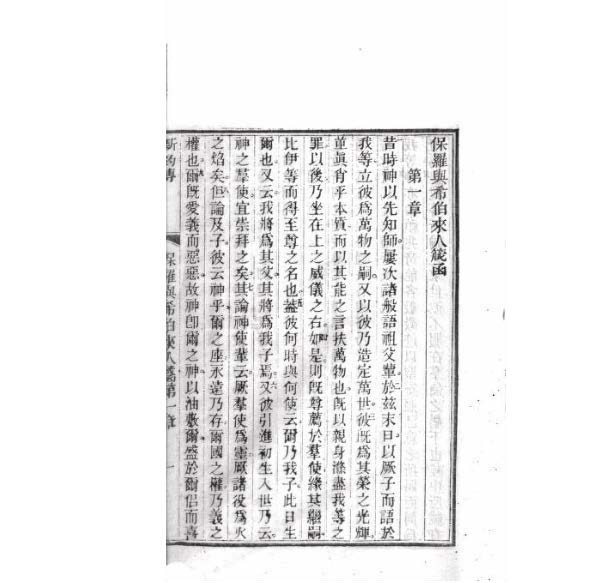 保羅與希伯來人箋函
第一章
昔時神以先知師屢次諸般語祖父輩於茲末日以厥子而語於
我等立彼爲萬物之嗣又以彼乃造定萬世彼旣爲其榮之光輝
並眞肖乎本質而以其能之言扶萬物也旣以親身滌盡我等之
罪以後乃坐在上之威儀之右如是則旣尊薦於羣使緣其繼嗣
比伊等而得至尊之名也蓋彼何時與何使云爾乃我子此日生
爾也又云我將爲其父其將爲我子焉又彼引進初生入世乃云
神之羣使宜崇拜之矣其論神使輩云厥羣使爲靈厥諸役爲火
之焰矣但論及子彼云神乎爾之座永遠乃存爾國之權乃義之
權也爾旣愛義而惡惡故神卽爾之神以油敷爾盛於爾侶而喜
保羅與希伯來人第一章 一